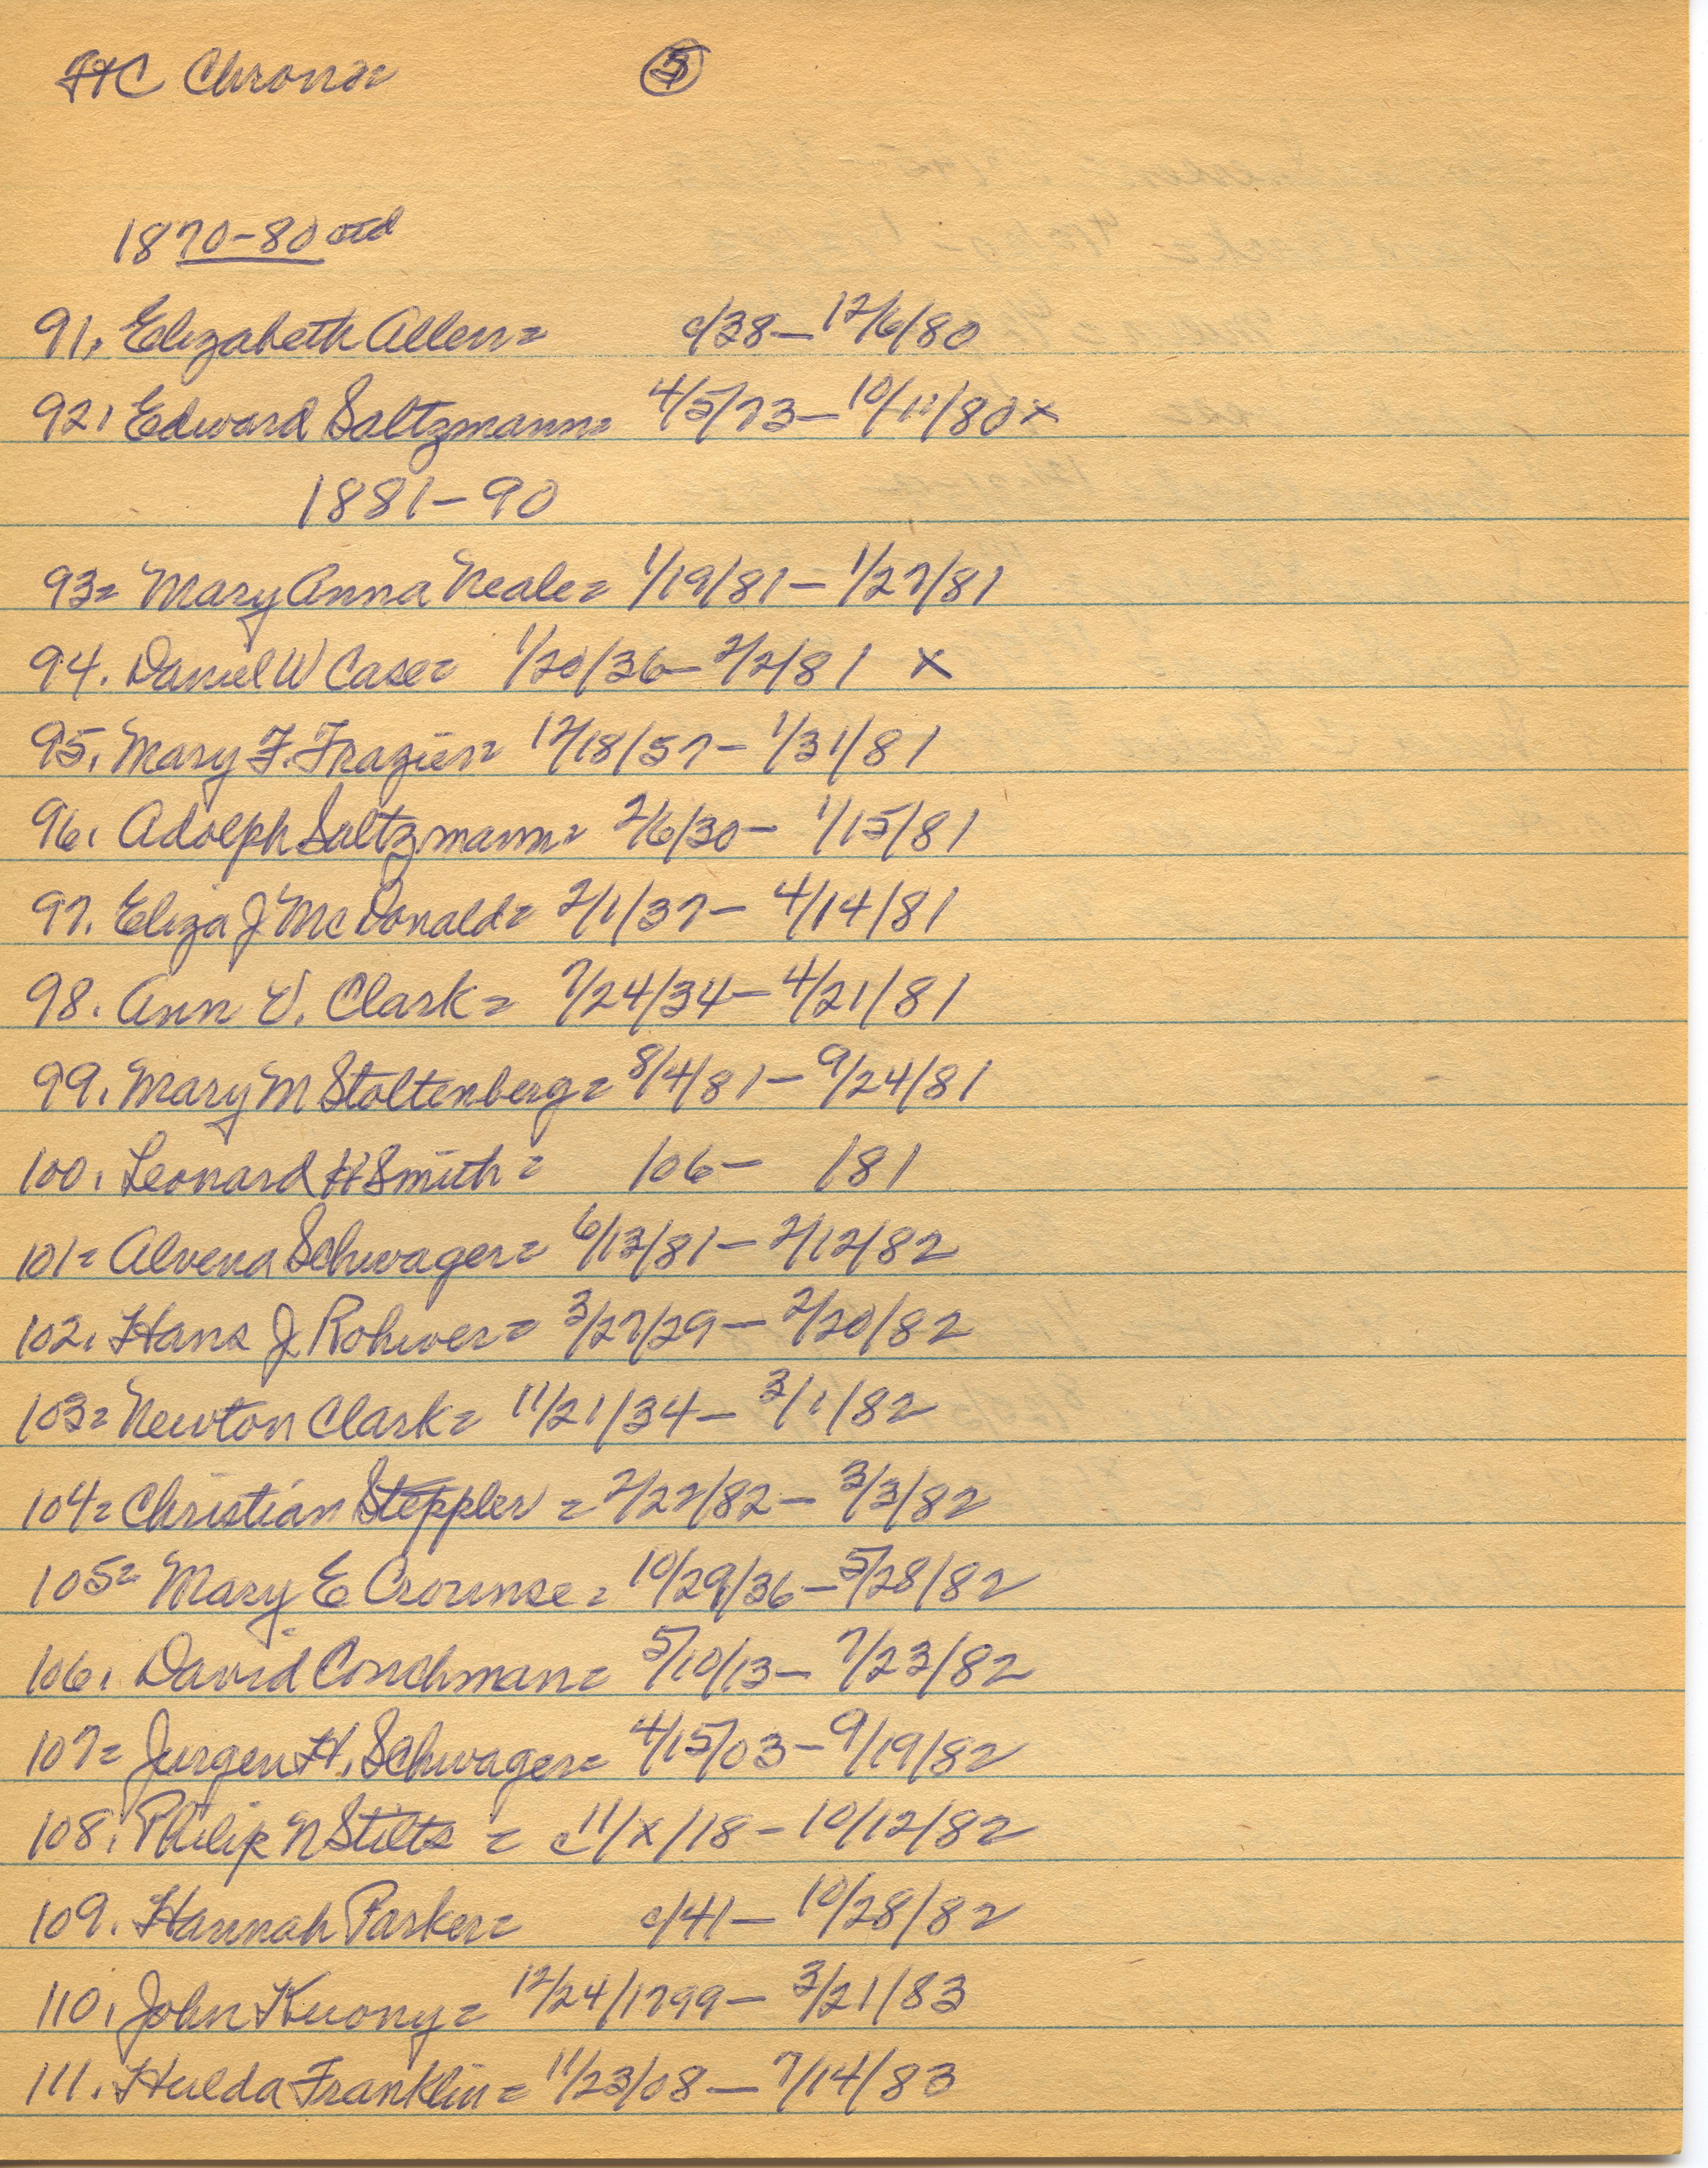 FtC Chron= ⑤
1870-80 ctd
91. Elizabeth Allen= c/38– 12/6/80
92. Edward Saltzmann= 4/5/73– 10/11/80x
1881–90
93= Mary Anna Neale= 1/19/81– 1/27/81
94. Daniel W Case= 1/20/36– 2/2/81 x
95. Mary F. Frazier= 12/18/57– 1/31/81
96. Adolph Saltzmann= 2/6/30– 1/15/81
97. Eliza J McDonald= 2/1/37– 4/14/81
98. Ann V. Clark= 7/24/34– 4/21/81
99. Mary M Stoltenberg= 8/4/81– 9/24/81
100. Leonard H Smith= /06– /81
101= Alvena Schwager= 6/13/81– 2/12/82
102. Hans J Rohwer= 3/27/29– 2/20/82
103= Newton Clark= 11/21/34– 3/1/82
104= Christian Steppler = 2/22/82– 3/3/82
105= Mary E Crounse= 10/29/36–5/28/82
106. David Couchman= 5/10/13– 7/23/82
107= Jurgen H. Schwager= 4/15/03–9/19/82
108. Philip N Stilts = c11/x/18–10/12/82
109. Hannah Parker= c/41– 10/28/82
110. John Kuony= 12/24/1799– 3/21/83
111. Hulda Franklin= 11/23/08– 7/14/83